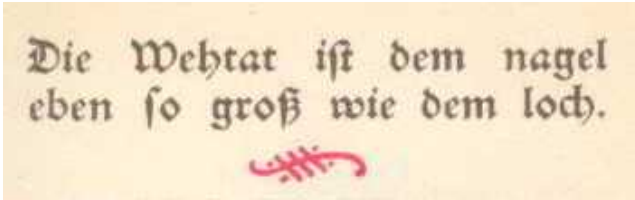 Die Wehtat ist dem nagel
eben so groß wie dem loch.